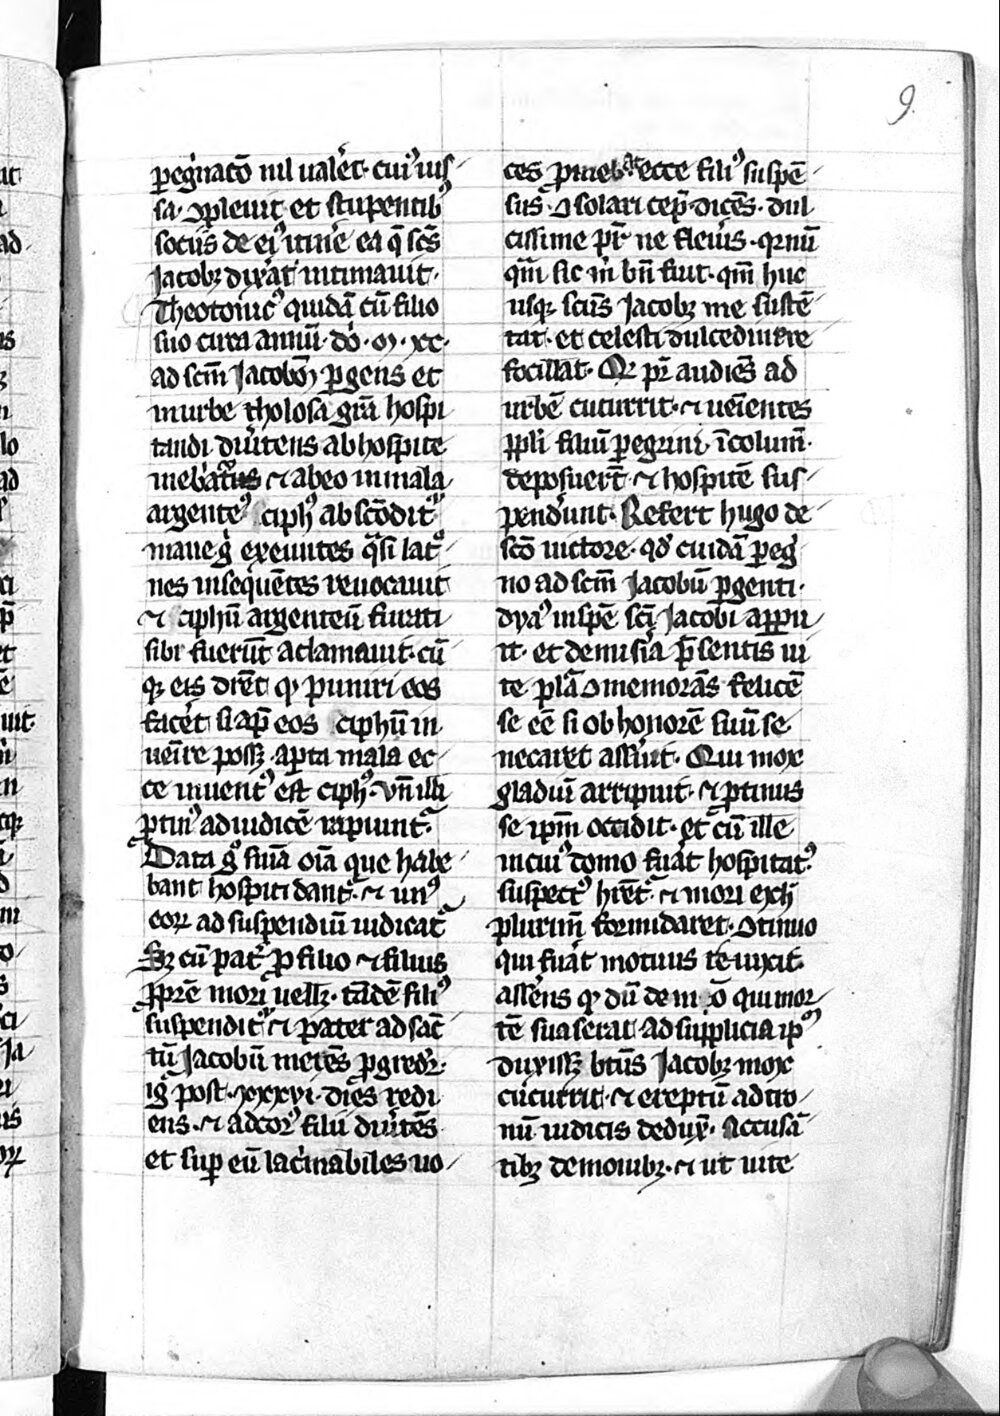 9
peg̾nacō nil ualer̄et· cui᷒ ius
sa· ꝯpleuit et stupentib᷒
sociis de ei᷒ itin̾e ea q̄ sc̄s
Jacobꝫ dix̾at intimauit·
Theotonic᷒ quidā cū filio
suo circa annū· do͛· M· xc·
ad sc̄m Jacobū ꝑgens et
in urbe tholosa gr̄a hospi
tandi diu̾tens ab hospite
inebriat᷒ ⁊ ab eo in mala
argente᷒ ciph᷒ abscōdit᷑
mane g̊ exeuntes q̄si lat᷑
nes insequētes reuocauit
⁊ ciphū argenteū furati
sibi fuerūt aclamauit· cū
qꝫ eis dic̾ēt ꝙ puniri eos
facēt si ap̄ eos ciphū in
uenīre possꝫ· aꝑta mala ec
ce inuent᷒ est ciph᷒· vn̄ illi
ꝓtin᷒ ad iudicē rapiunt᷑·
Data g̊ sniā oīa que habe
bant hospiti dant᷑· ⁊ un᷒
eoꝝ ad suspendiū iudicat᷑
Sꝫ cū pat̾ ꝓ filio ⁊ filius
ꝓ pr̄e mori uellꝫ· tādē fili᷒
suspendit᷑ ⁊ pater ad sāc
tū Jacobū merēs ꝓgredit᷑·
ig̊ post· xxxvi· dies redi
ens· ⁊ ad cor᷒ filii diu̾tēs
et suꝑ eū lac̾imabiles uo
ces promebat ecce fili᷒ suspē
sus· ꝯsolari cep̄· dicēs· dul
cissime pr̄ ne fleu̾is· qr nū
q̄m sic m̄ bn̄ fuit· qm̄ huc
usqꝫ sc̄us Jacobꝫ me sustē
tat· et celesti dulcedine re
focillat· Qr pr̄ audiēs ad
urbē cucurrit· ⁊ uen̄ientes
ppl̄i filiū ꝑegrini· īcolumē·
deposuert̄ ⁊ hospitē sus
pendunt· Refert hugo de
sc̄o uictore· qd̾ cuidā ꝑeg̾
no ad sc̄m Jacobū ꝑgenti·
dya᷒ in spē sc̄i Jacobi appu
it· et de mis̾ia p̄sentis ui
te pl̄a ꝯmemorās felicē
se eē si ob honorē suū se
necaret assruit· Qui mox
gladiū arripuit· ⁊ ꝓtinus
se ip̄m occidit· et cū ille
in cui᷒ domo fu̾at hospitat᷒
suspect᷒ hr̄et᷑ ⁊ mori exīn
plurim̄ formidaret· ꝯtinuo
qui fu̾at mortuus reuixit·
ass̾ens ꝙ dū demō qui mor
tē suaserat· ad supplicia ip̄m
duxissꝫ bt̄us Jacobꝫ mox
cucurrit· ⁊ ereptū ad tro
nū iudicis dedux̾· Accusā
tibꝫ demonibꝫ· ⁊ ut uite